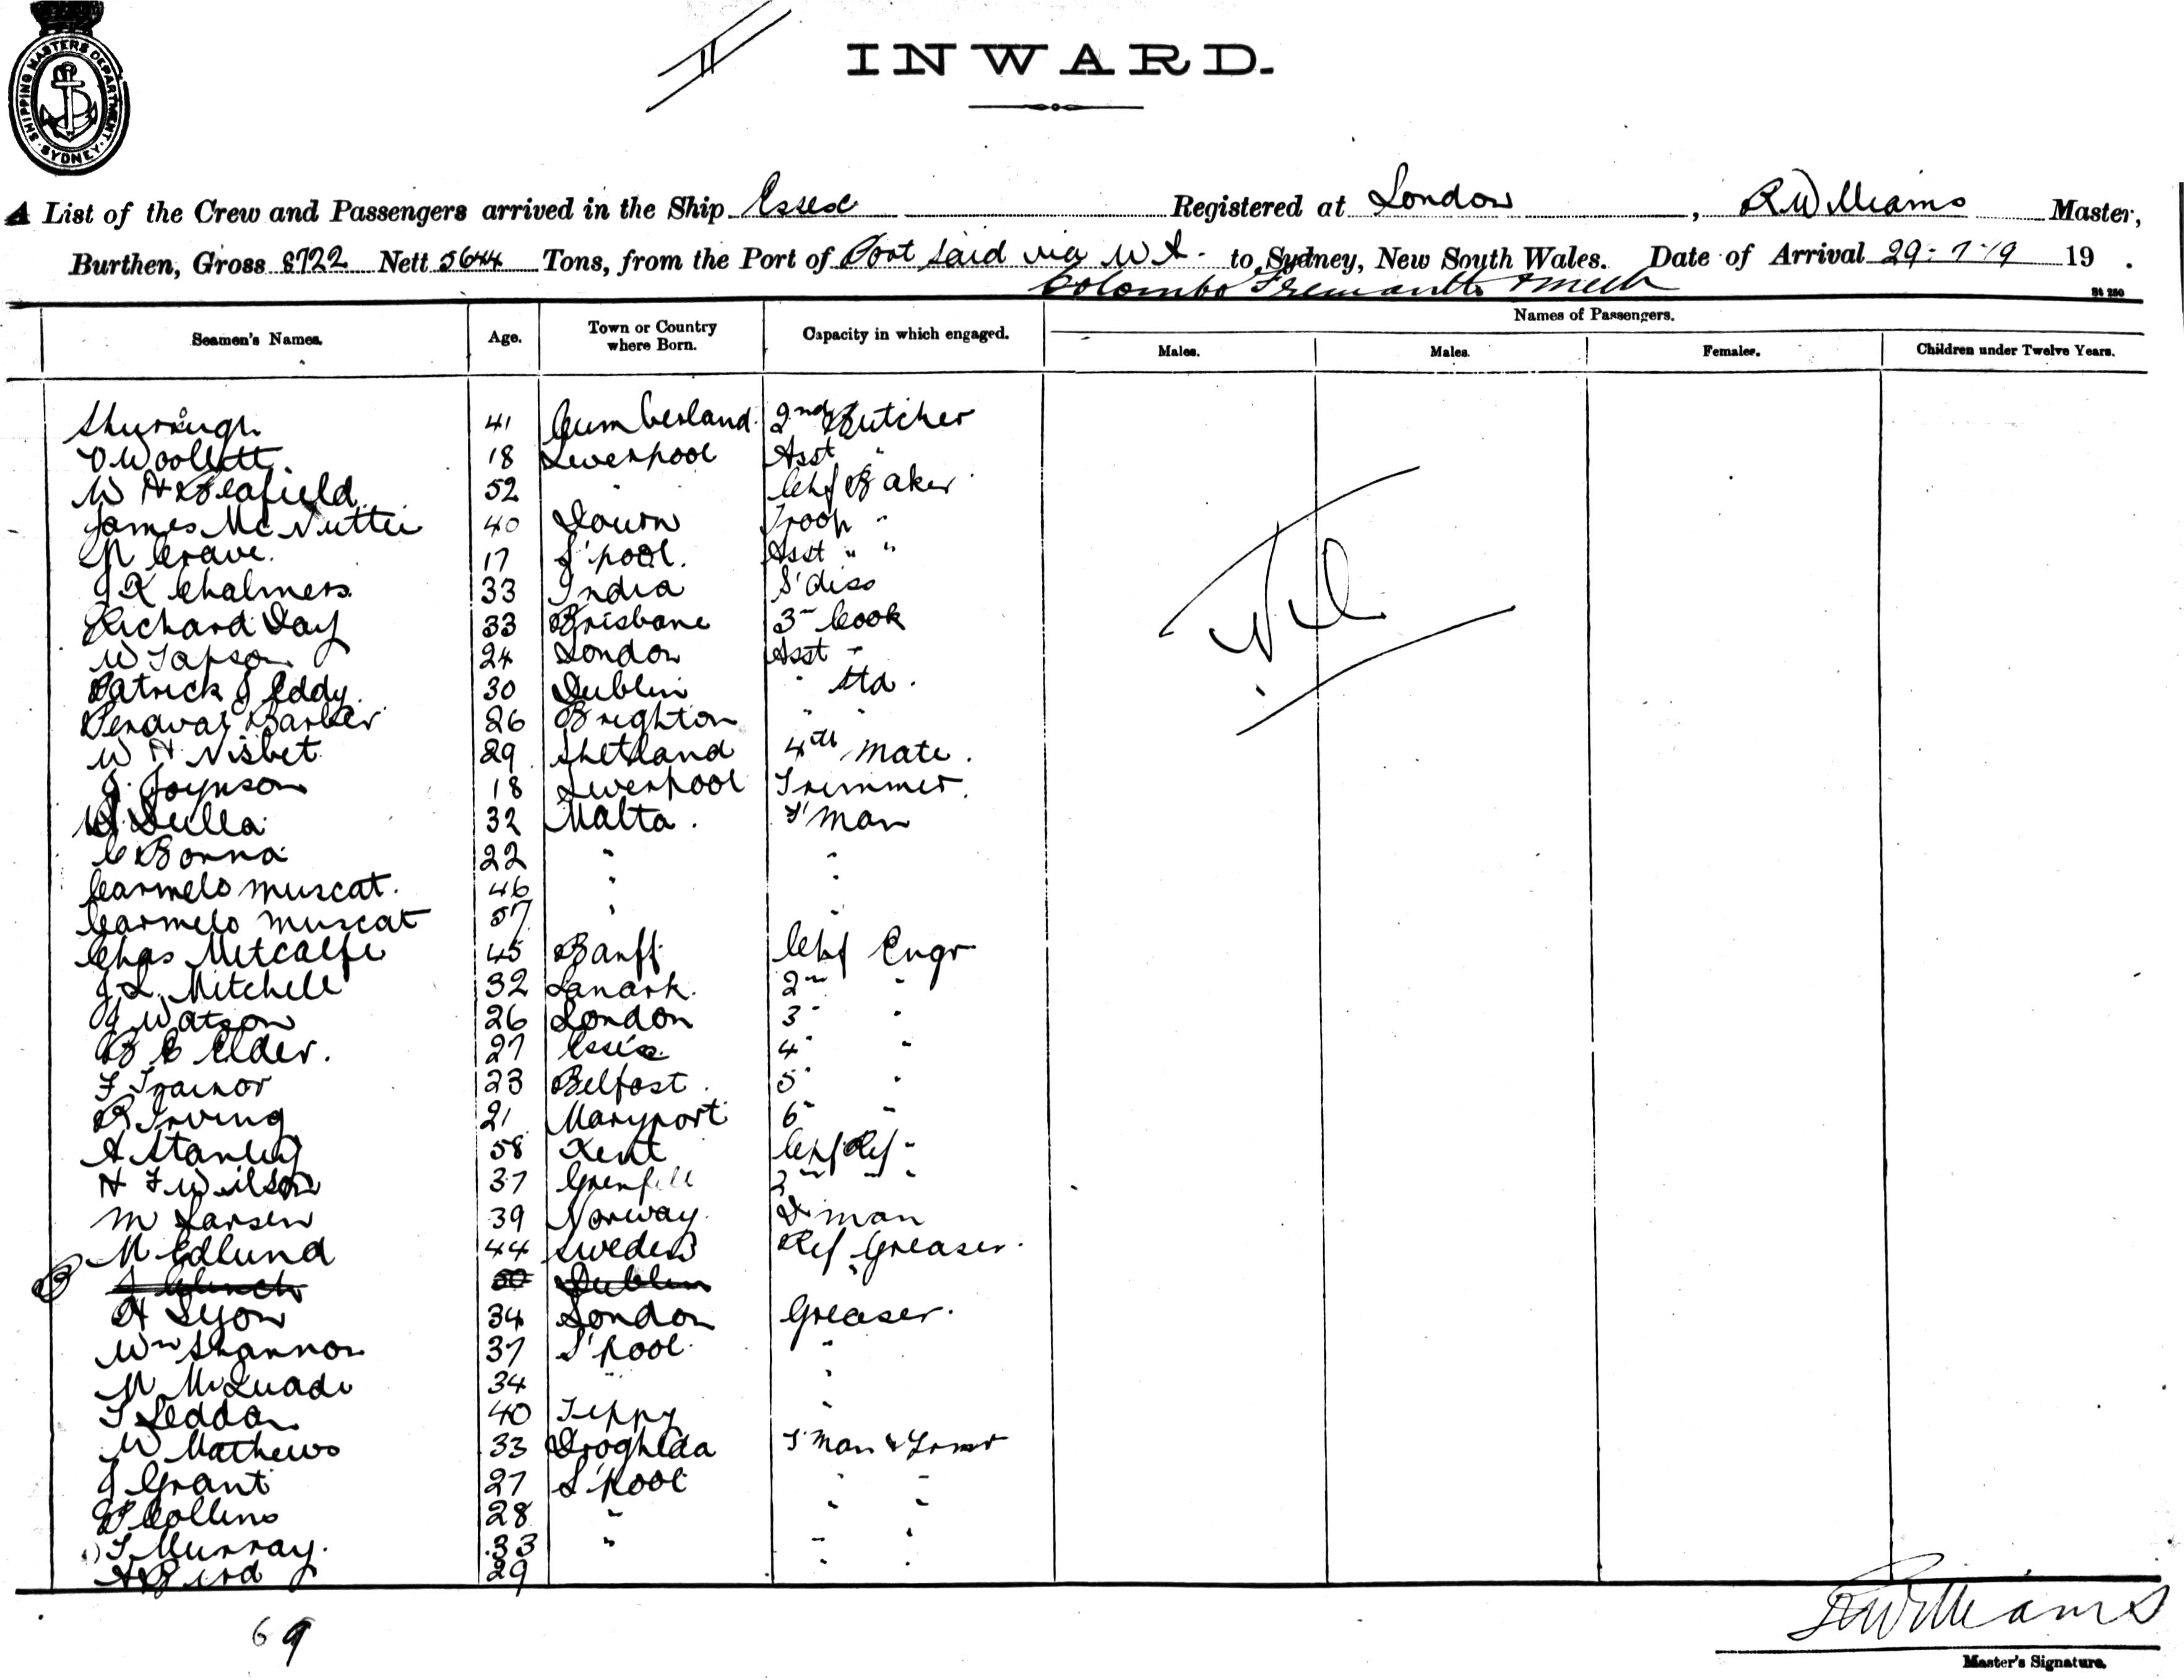 SHIPPING MASTERS DEPARTMENT SYDNEY
II
INWARD.
A List of the Crew and Passengers arrived in the Ship Essex Registered at London, R Williams Master,
Burthen, Gross 8722 Nett 5644 Tons, from the Port of Port Said via W A. to Sydney, New South Wales. Date of Arrival 29-7-19 19 .
Colombo Fremantle & Melb
Names of Passengers.
Seamen's Names. Age. Town or Country where Born. Capacity in which engaged. Males. Males. Females. Children under Twelve Years.
41 Cumberland 2nd Butcher
Woollett 18 Liverpool Asst "
W H 52 " Chf Baker
James Mc Nuttie 40 Down Troop "
N Crave. 17 L'pool. Asst " "
J R Chalmers 33 India S'diso
Richard Day 33 Brisbane 3rd Cook
W Tapson 24 London Asst "
Patrick J Eddy 30 Dublin " Std.
Percival Barber 26 Brighton " "
W H Nisbet 29 Shetland 4th Mate.
J. Joynson 18 Liverpool Trimmer.
Sulla 32 Malta. F'man
C Bonna 22 " "
Carmelo Muscat. 46 " "
Carmelo Muscat 57 " "
Chas Metcalfe 45 Banff Chf Engr
J L Mitchell 32 Lanark. 2nd "
J Watson 26 London 3" "
B C Elder. 27 Essex 4" "
F Trainor 23 Belfast. 5" "
R Irving 21 Maryport 6" "
A Stanley 58 Kent Chf Ref "
H F Wilson 37 Grenfell 2nd " "
M Larsen 39 Norway. D'man
M Edlund 44 Sweden Ref Greaser.
J Clinch 50 Dublin "
H Lyon 34 London Greaser.
Wm Shannon 37 L'pool. "
N McQuade 34 " "
T Leddan 40 Tippy "
W Mathews 33 Drogheda F'man & Trmr
J Grant 27 L'pool " "
P Collins 28 " " "
T Murray. 33 " " "
A Bird 29 " "
Nil
69
R Williams
Master's Signature.